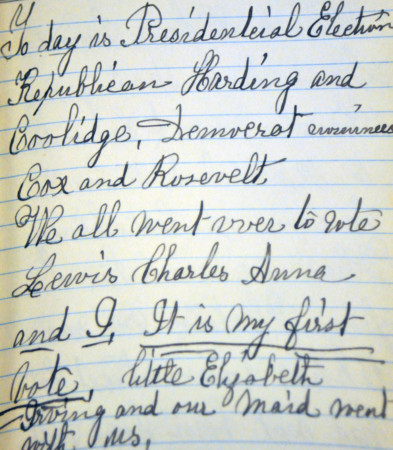 To day is Presidenteial Election
Republican Harding and
Coolidge, Democrat
Cox and Rosevelt
We all went over to vote
Lewis Charles Anna
and I, It is my first
vote, little Elizabeth
Irving and our maid went
with us,